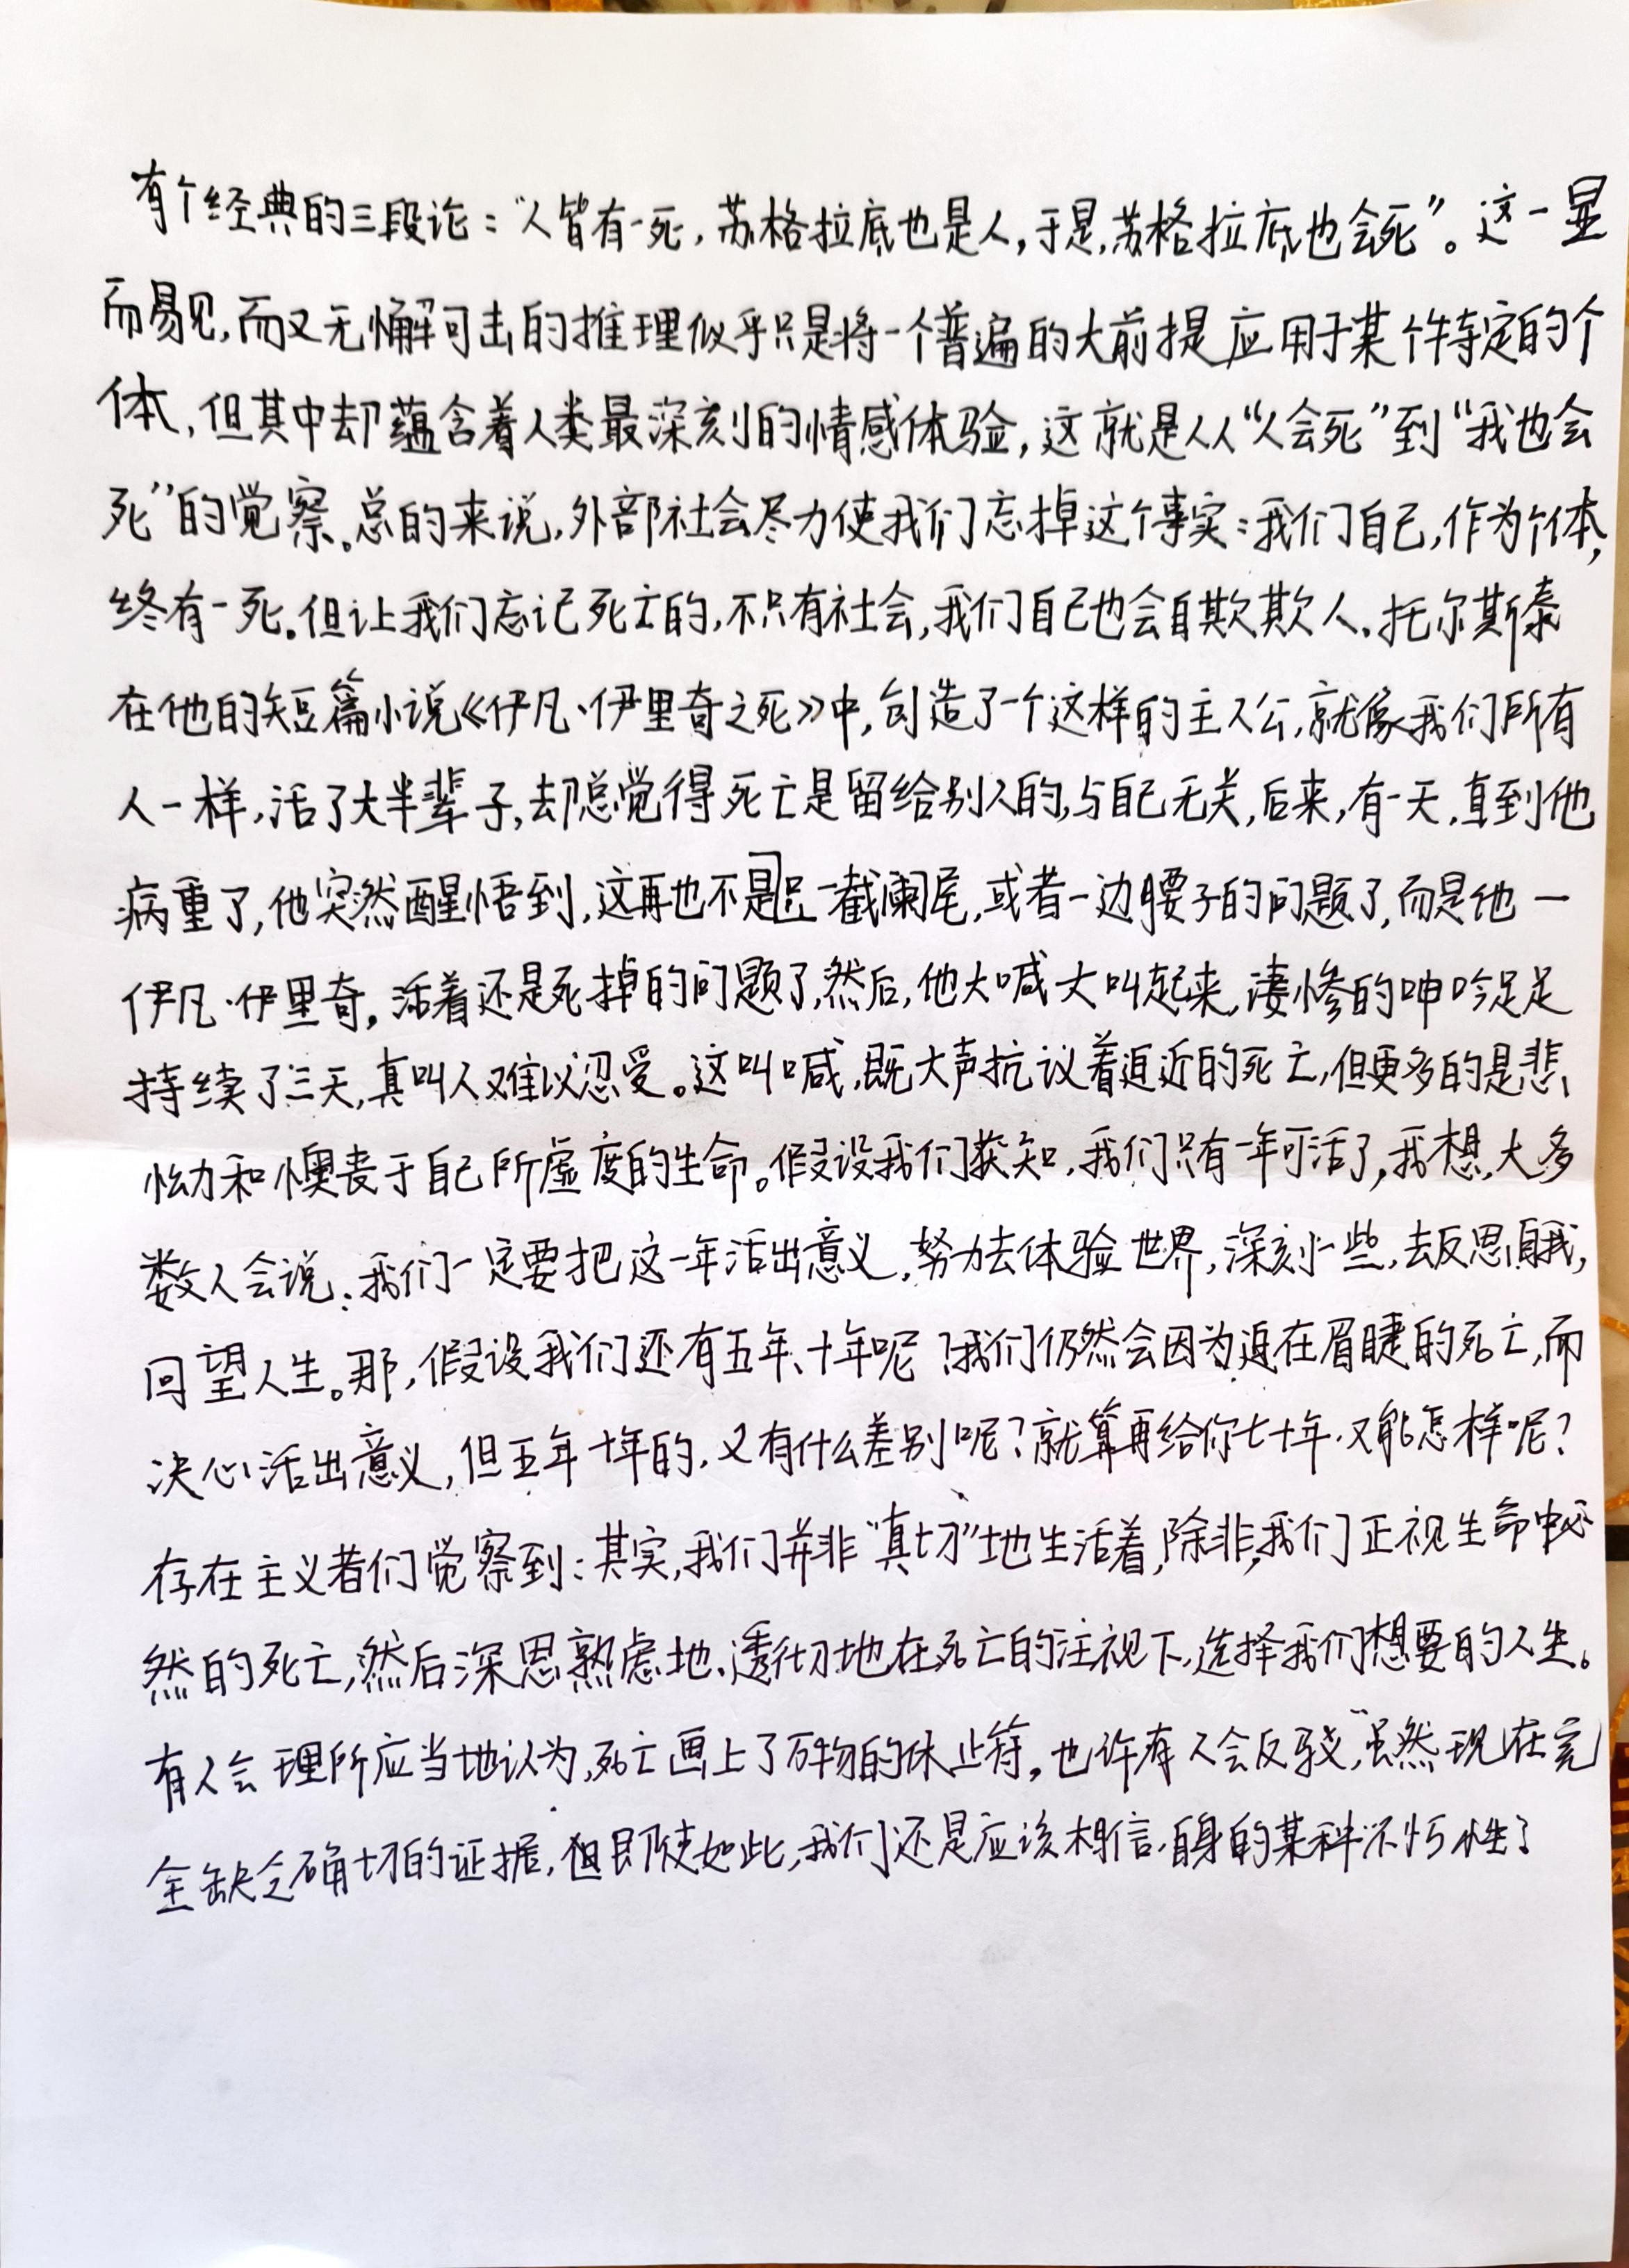 有个经典的三段论：“人皆有一死，苏格拉底也是人，于是，苏格拉底也会死”。这一显
而易见，而又无懈可击的推理似乎只是将一个普遍的大前提应用于某个特定的个
体，但其中却蕴含着人类最深刻的情感体验，这就是从“人会死”到“我也会
死”的觉察。总的来说，外部社会尽力使我们忘掉这个事实：我们自己，作为个体，
终有一死。但让我们忘记死亡的，不只有社会，我们自己也会自欺欺人。托尔斯泰
在他的短篇小说《伊凡·伊里奇之死》中，创造了一个这样的主人公，就像我们所有
人一样，活了大半辈子，却总觉得死亡是留给别人的，与自己无关，后来，有一天，直到他
病重了，他突然醒悟到，这再也不是只一截阑尾，或者一边腰子的问题了，而是他一
伊凡·伊里奇，活着还是死掉的问题了，然后，他大喊大叫起来，凄惨的呻吟足足
持续了三天，真叫人难以忍受。这叫喊，既大声抗议着迫近的死亡，但更多的是悲
恸和懊丧于自己所虚度的生命。假设我们获知，我们只有一年可活了，我想，大多
数人会说：我们一定要把这一年活出意义，努力去体验世界，深刻一些，去反思自我，
回望人生。那，假设我们还有五年、十年呢？我们仍然会因为迫在眉睫的死亡，而
决心活出意义，但五年十年的，又有什么差别呢？就算再给你七十年，又能怎样呢？
存在主义者们觉察到：其实，我们并非“真切”地生活着，除非，我们正视生命中必
然的死亡，然后深思熟虑地、透彻地在死亡的注视下，选择我们想要的人生。
有人会理所应当地认为，死亡画上了万物的休止符，也许有人会反驳，“虽然现在完
全缺乏确切的证据，但即使如此，我们还是应该相信，自身的某种不朽性了